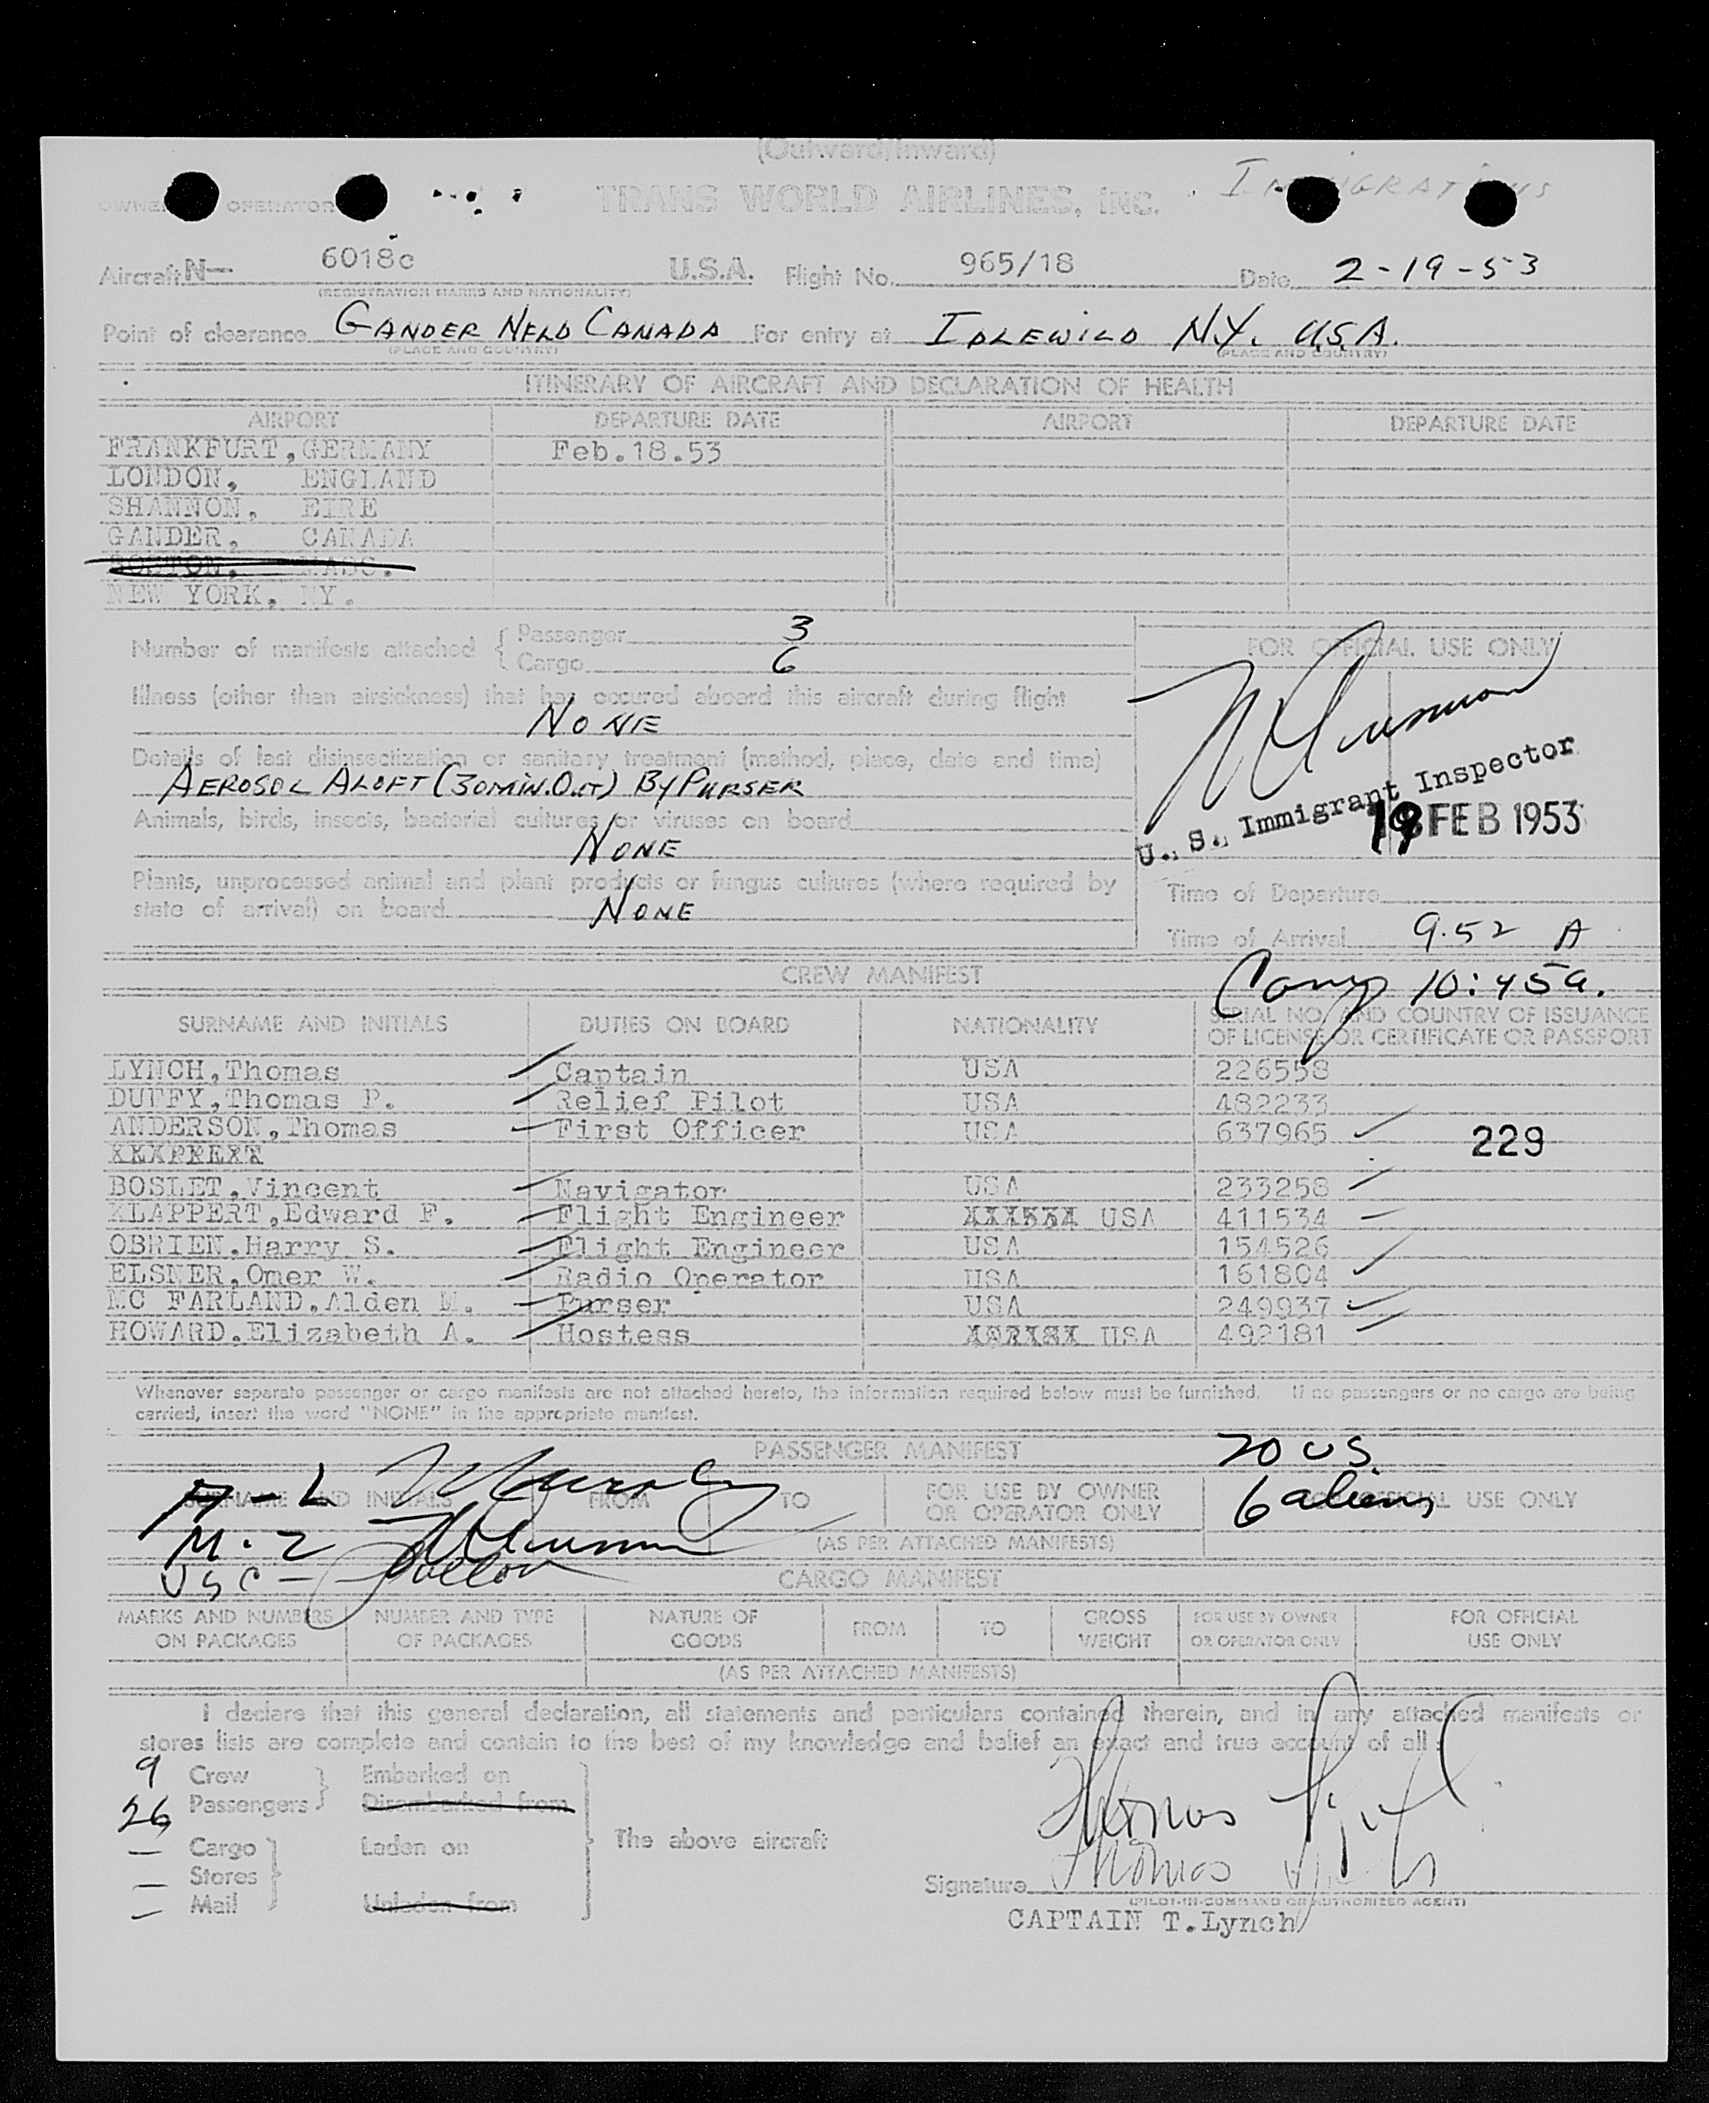 (Outward/Inward)
OWNER OPERATOR TRANS WORLD AIRLINES, INC. IMMIGRATIONS
Aircraft N— 6018c U.S.A. Flight No. 965/18 Date 2-19-53
(REGISTRATION MARKS AND NATIONALITY)
Point of clearance GANDER NFLD CANADA For entry at IDLEWILD N.Y. U.S.A.
(PLACE AND COUNTRY) (PLACE AND COUNTRY)
ITINERARY OF AIRCRAFT AND DECLARATION OF HEALTH
AIRPORT DEPARTURE DATE AIRPORT DEPARTURE DATE
FRANKFURT, GERMANY Feb.18.53
LONDON, ENGLAND
SHANNON, EIRE
GANDER, CANADA
BOSTON, MASS.
NEW YORK, NY.
Number of manifests attached { Passenger 3
Cargo 6
FOR OFFICIAL USE ONLY
Illness (other than airsickness) that has occured aboard this aircraft during flight
NONE
Details of last disinsectization or sanitary treatment (method, place, date and time)
AEROSOL ALOFT (30 MIN. OUT) BY PURSER
U. S. Immigrant Inspector
19 FEB 1953
Animals, birds, insects, bacterial cultures or viruses on board
NONE
Plants, unprocessed animal and plant products or fungus cultures (where required by
state of arrival) on board NONE
Time of Departure
Time of Arrival 9.52 A
CREW MANIFEST
Comp 10:45a.
SURNAME AND INITIALS DUTIES ON BOARD NATIONALITY SERIAL NO. AND COUNTRY OF ISSUANCE
OF LICENSE OR CERTIFICATE OR PASSPORT
LYNCH,Thomas Captain USA 226558
DUFFY,Thomas P. Relief Pilot USA 482233
ANDERSON,Thomas First Officer USA 637965
229
BOSLET,Vincent Navigator USA 233258
KLAPPERT,Edward F. Flight Engineer USA 411534
OBRIEN.Harry S. Flight Engineer USA 154526
ELSNER,Omer W. Radio Operator USA 161804
MC FARLAND,Alden M. Purser USA 249937
HOWARD.Elizabeth A. Hostess USA 492181
Whenever separate passenger or cargo manifests are not attached hereto, the information required below must be furnished. If no passengers or no cargo are being
carried, insert the word "NONE" in the appropriate manifest.
PASSENGER MANIFEST
20 US.
6 aliens
A-L Murphy
SURNAME AND INITIALS FROM TO FOR USE BY OWNER
OR OPERATOR ONLY
FOR OFFICIAL USE ONLY
M-Z
(AS PER ATTACHED MANIFESTS)
USC-
CARGO MANIFEST
MARKS AND NUMBERS
ON PACKAGES
NUMBER AND TYPE
OF PACKAGES
NATURE OF
GOODS
FROM
TO
GROSS
WEIGHT
FOR USE BY OWNER
OR OPERATOR ONLY
FOR OFFICIAL
USE ONLY
(AS PER ATTACHED MANIFESTS)
I declare that this general declaration, all statements and particulars contained therein, and in any attached manifests or
stores lists are complete and contain to the best of my knowledge and belief an exact and true account of all :
9 Crew Embarked on
26 Passengers Disembarked from
— Cargo Laden on
The above aircraft
— Stores
— Mail Unladen from
Thomas Lynch
Signature Thomas Lynch
(PILOT-IN-COMMAND OR AUTHORIZED AGENT)
CAPTAIN T.Lynch